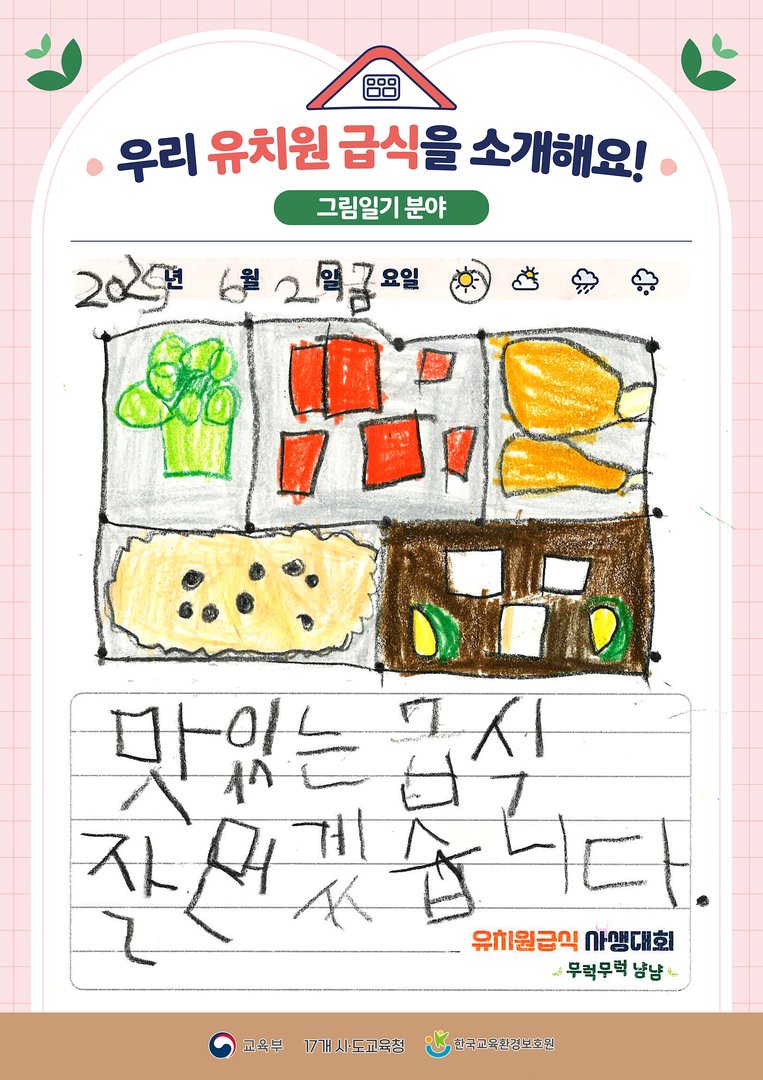 우리 유치원 급식을 소개해요!
그림일기 분야
2025년 6월 27일 금요일
맛있는 급식
잘 먹겠습니다.
유치원급식 사생대회
무럭무럭 냠냠
교육부 17개 시·도교육청 한국교육환경보호원